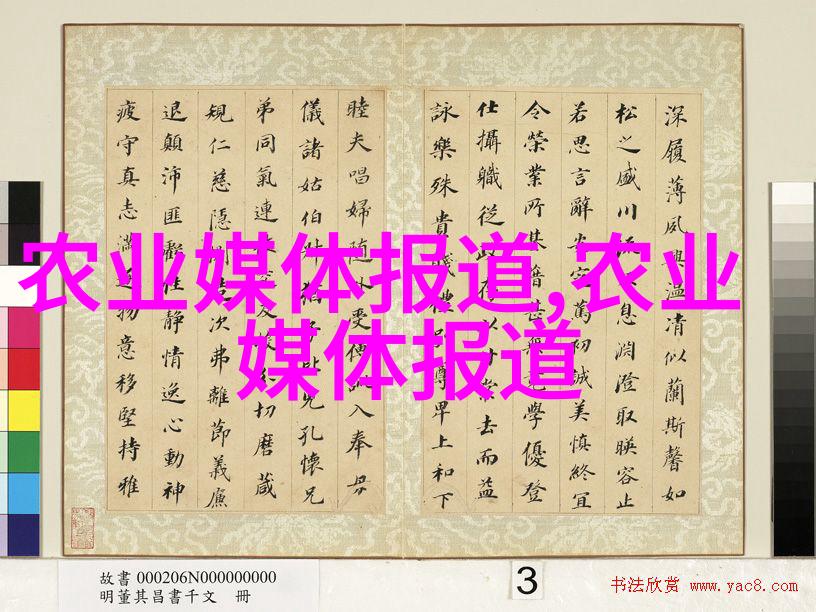 农业媒体报道,农业
媒体报道
深履薄夙興温凊似蘭斯馨如
松之盛川流不息淵澄取暎容止
若思言辭安定篤初誠美慎終宜
令榮業所基籍甚無竟學優登
仕攝職從政存以甘棠去而益
詠樂殊貴賤禮別尊卑上和下
睦夫唱婦隨外受傅訓入奉母
儀諸姑伯叔猶子比兒孔懷兄
弟同氣連枝交友投分切磨箴
規仁慈隱惻造次弗離節義廉
退顛沛匪虧性靜情逸心動神
疲守真志滿逐物意移堅持雅
故書 000206N000000000
明董其昌書千文 冊
3
书法欣赏 www.yac8.com